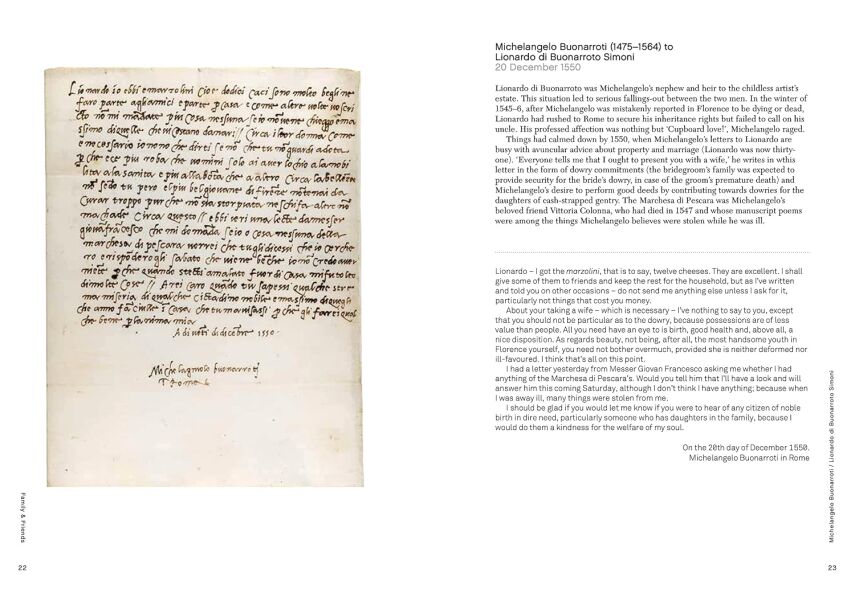 Lionardo io ebbi e marzolini cioe dodici caci sono molto begli ne
faro parte agli amici e parte p casa e come altre volte vo scri
cto no mi madate piu cosa nessuna se io no ve ne chieggo e ma
ssimo di quelle che vi costano danari // Circa il tor donna come
e necessario io no no che dirti se no che tu no guardi a dota
p che ece piu roba che uomini solo ai aver lochio alla nobi
lita alla sanita e piu alla bota che a altro Circa la belleza
no sedo tu pero el piu bel giovane di fireze no te nai da
curar troppo pur che no sia storpiata ne schifa altro no
ma chade circa questo // ebbi ieri una lectera da messer
giovafracesco che mi domada se io o cosa nessuna della
marchesa di pescara vorrei che tu gli dicessi che io cerche
ro e rispoderogli sabato che viene be che io no credo aver
niete p che quando stetti amalato fuor di casa mi fu tolto
di molte cose // Arei caro quado tu sapessi qualche stre
ma miseria di qualche cittadino nobile e massimo di quegli
che anno faciulle i casa che tu mavisassi p che gli farei qual
che bene p lanima mia
A di veti di dicebre 1550
Michelagniolo buonarroti
Roma
Family & Friends
22
Michelangelo Buonarroti (1475–1564) to
Lionardo di Buonarroto Simoni
20 December 1550
Lionardo di Buonarroto was Michelangelo's nephew and heir to the childless artist's
estate. This situation led to serious fallings-out between the two men. In the winter of
1545–6, after Michelangelo was mistakenly reported in Florence to be dying or dead,
Lionardo had rushed to Rome to secure his inheritance rights but failed to call on his
uncle. His professed affection was nothing but 'Cupboard love!', Michelangelo raged.
Things had calmed down by 1550, when Michelangelo's letters to Lionardo are
busy with avuncular advice about property and marriage (Lionardo was now thirty-
one). 'Everyone tells me that I ought to present you with a wife,' he writes in wthis
letter in the form of dowry commitments (the bridegroom's family was expected to
provide security for the bride's dowry, in case of the groom's premature death) and
Michelangelo's desire to perform good deeds by contributing towards dowries for the
daughters of cash-strapped gentry. The Marchesa di Pescara was Michelangelo's
beloved friend Vittoria Colonna, who had died in 1547 and whose manuscript poems
were among the things Michelangelo believes were stolen while he was ill.
Lionardo – I got the marzolini, that is to say, twelve cheeses. They are excellent. I shall
give some of them to friends and keep the rest for the household, but as I've written
and told you on other occasions – do not send me anything else unless I ask for it,
particularly not things that cost you money.
About your taking a wife – which is necessary – I've nothing to say to you, except
that you should not be particular as to the dowry, because possessions are of less
value than people. All you need have an eye to is birth, good health and, above all, a
nice disposition. As regards beauty, not being, after all, the most handsome youth in
Florence yourself, you need not bother overmuch, provided she is neither deformed nor
ill-favoured. I think that's all on this point.
I had a letter yesterday from Messer Giovan Francesco asking me whether I had
anything of the Marchesa di Pescara's. Would you tell him that I'll have a look and will
answer him this coming Saturday, although I don't think I have anything; because when
I was away ill, many things were stolen from me.
I should be glad if you would let me know if you were to hear of any citizen of noble
birth in dire need, particularly someone who has daughters in the family, because I
would do them a kindness for the welfare of my soul.
On the 20th day of December 1550.
Michelangelo Buonarroti in Rome
Michelangelo Buonarrori / Lionardo di Buonarroto Simoni
23